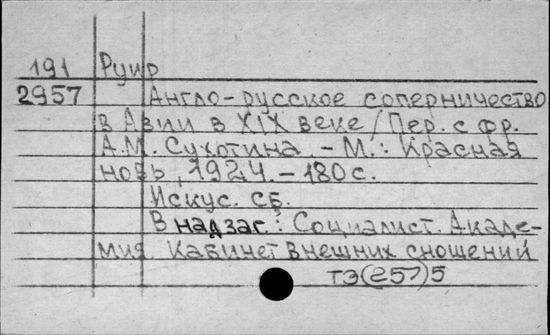 191 Руир
2957 Англо-русское соперничество
в Азии в XIX веке / Пер. с фр.
А.М. Сухотина. - М.: Красная
новь, 1924. - 180 с.
Искус. сб.
В надзаг.: Социалист. Акаде-
мия. Кабинет внешних сношений
ТЭ(257)5